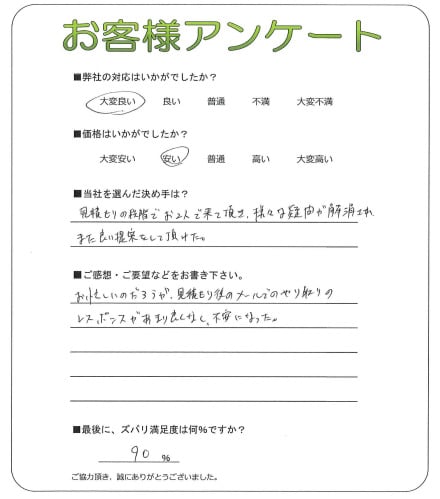 お客様アンケート
■弊社の対応はいかがでしたか？
大変良い 良い 普通 不満 大変不満
■価格はいかがでしたか？
大変安い 安い 普通 高い 大変高い
■当社を選んだ決め手は？
見積もりの段階でお2人で来て頂き、様々な疑問が解消され
また良い提案をして頂けた。
■ご感想・ご要望などをお書き下さい。
お忙しいのだろうが、見積もり後のメールでのやり取りの
レスポンスがあまり良くなく、不安になった。
■最後に、ズバリ満足度は何%ですか？
90 %
ご協力頂き、誠にありがとうございました。